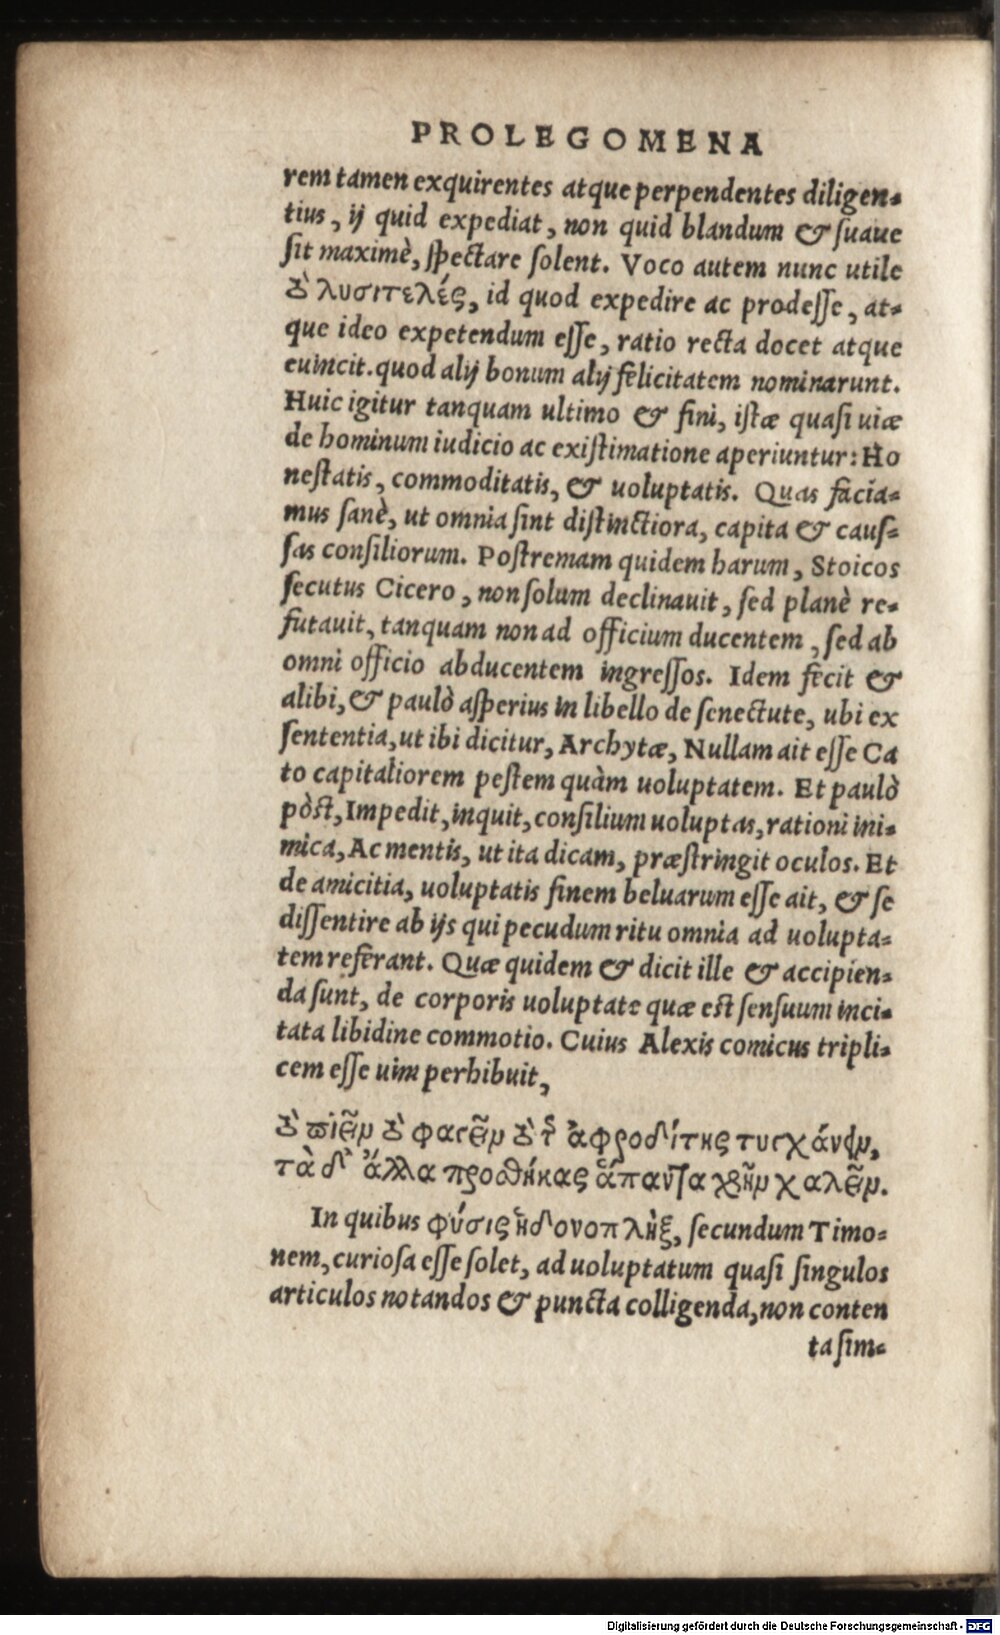 PROLEGOMENA
rem tamen exquirentes atque perpendentes diligen-
tius, ij quid expediat, non quid blandum & suaue
sit maximè, spectare solent. Voco autem nunc utile
τὸ λυσιτελές, id quod expedire ac prodesse, at-
que ideo expetendum esse, ratio recta docet atque
euincit. quod alij bonum alij felicitatem nominarunt.
Huic igitur tanquam ultimo & fini, istæ quasi uiæ
de hominum iudicio ac existimatione aperiuntur: Ho
nestatis, commoditatis, & uoluptatis. Quas facia-
mus sanè, ut omnia sint distinctiora, capita & caus-
sas consiliorum. Postremam quidem harum, Stoicos
secutus Cicero, non solum declinauit, sed planè re-
futauit, tanquam non ad officium ducentem, sed ab
omni officio abducentem ingressos. Idem fecit &
alibi, & paulò asperius in libello de senectute, ubi ex
sententia, ut ibi dicitur, Archytæ, Nullam ait esse Ca
to capitaliorem pestem quàm uoluptatem. Et paulò
pòst, Impedit, inquit, consilium uoluptas, rationi ini-
mica, Ac mentis, ut ita dicam, præstringit oculos. Et
de amicitia, uoluptatis finem beluarum esse ait, & se
dissentire ab ijs qui pecudum ritu omnia ad uolupta-
tem referant. Quæ quidem & dicit ille & accipien-
da sunt, de corporis uoluptate quæ est sensuum inci-
tata libidine commotio. Cuius Alexis comicus tripli-
cem esse uim perhibuit,
τὸ πιεῖν τὸ φαγεῖν τὸ τῆς ἀφροδίτης τυγχάνειν,
τὰ δ' ἄλλα προσθήκας ἅπαντα χρῆν καλεῖν.
In quibus φύσις ἡδονοπλὴξ, secundum Timo-
nem, curiosa esse solet, ad uoluptatum quasi singulos
articulos notandos & puncta colligenda, non conten
ta sim-
Digitalisierung gefördert durch die Deutsche Forschungsgemeinschaft - DFG